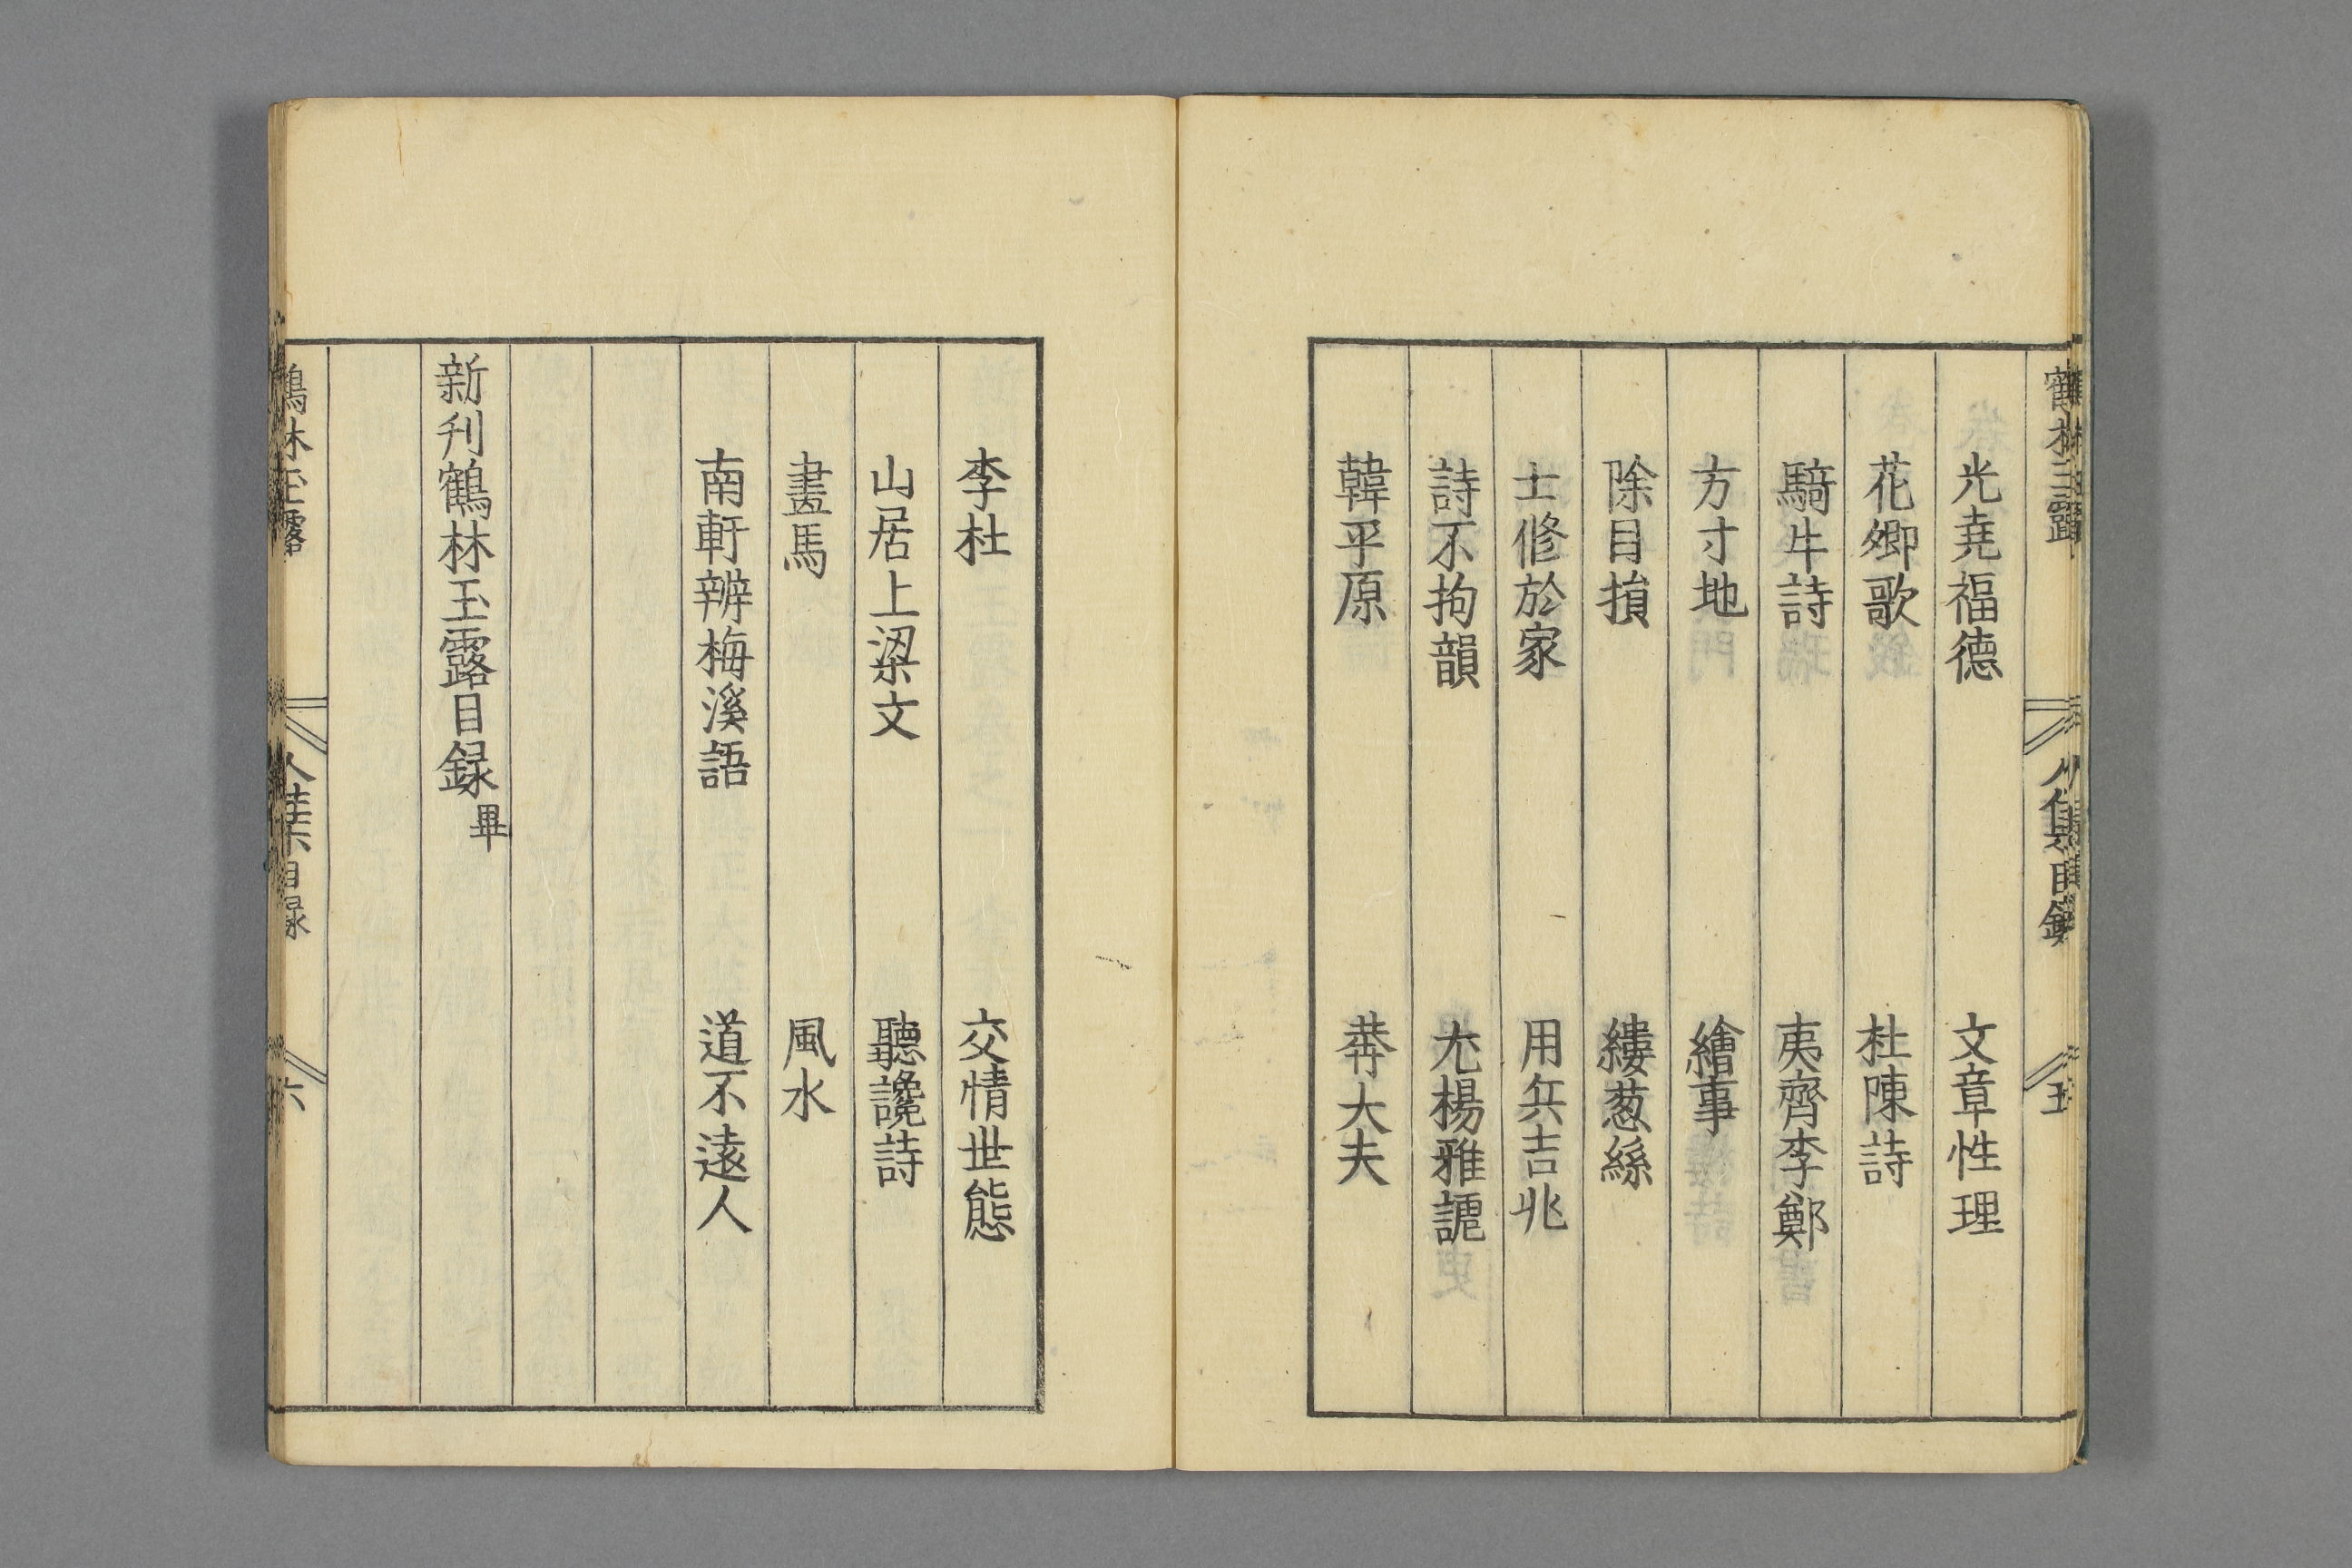 光堯福德　文章性理
花卿歌　杜陳詩
騎牛詩　夷齊李鄭
方寸地　繪事
除目損　縷葱絲
士修於家　用兵吉兆
詩不拘韻　尤楊雅謔
韓平原　莽大夫
李杜　交情世態
山居上梁文　聽讒詩
畫馬　風水
南軒辨梅溪語　道不遠人
新刋鶴林玉露目録畢